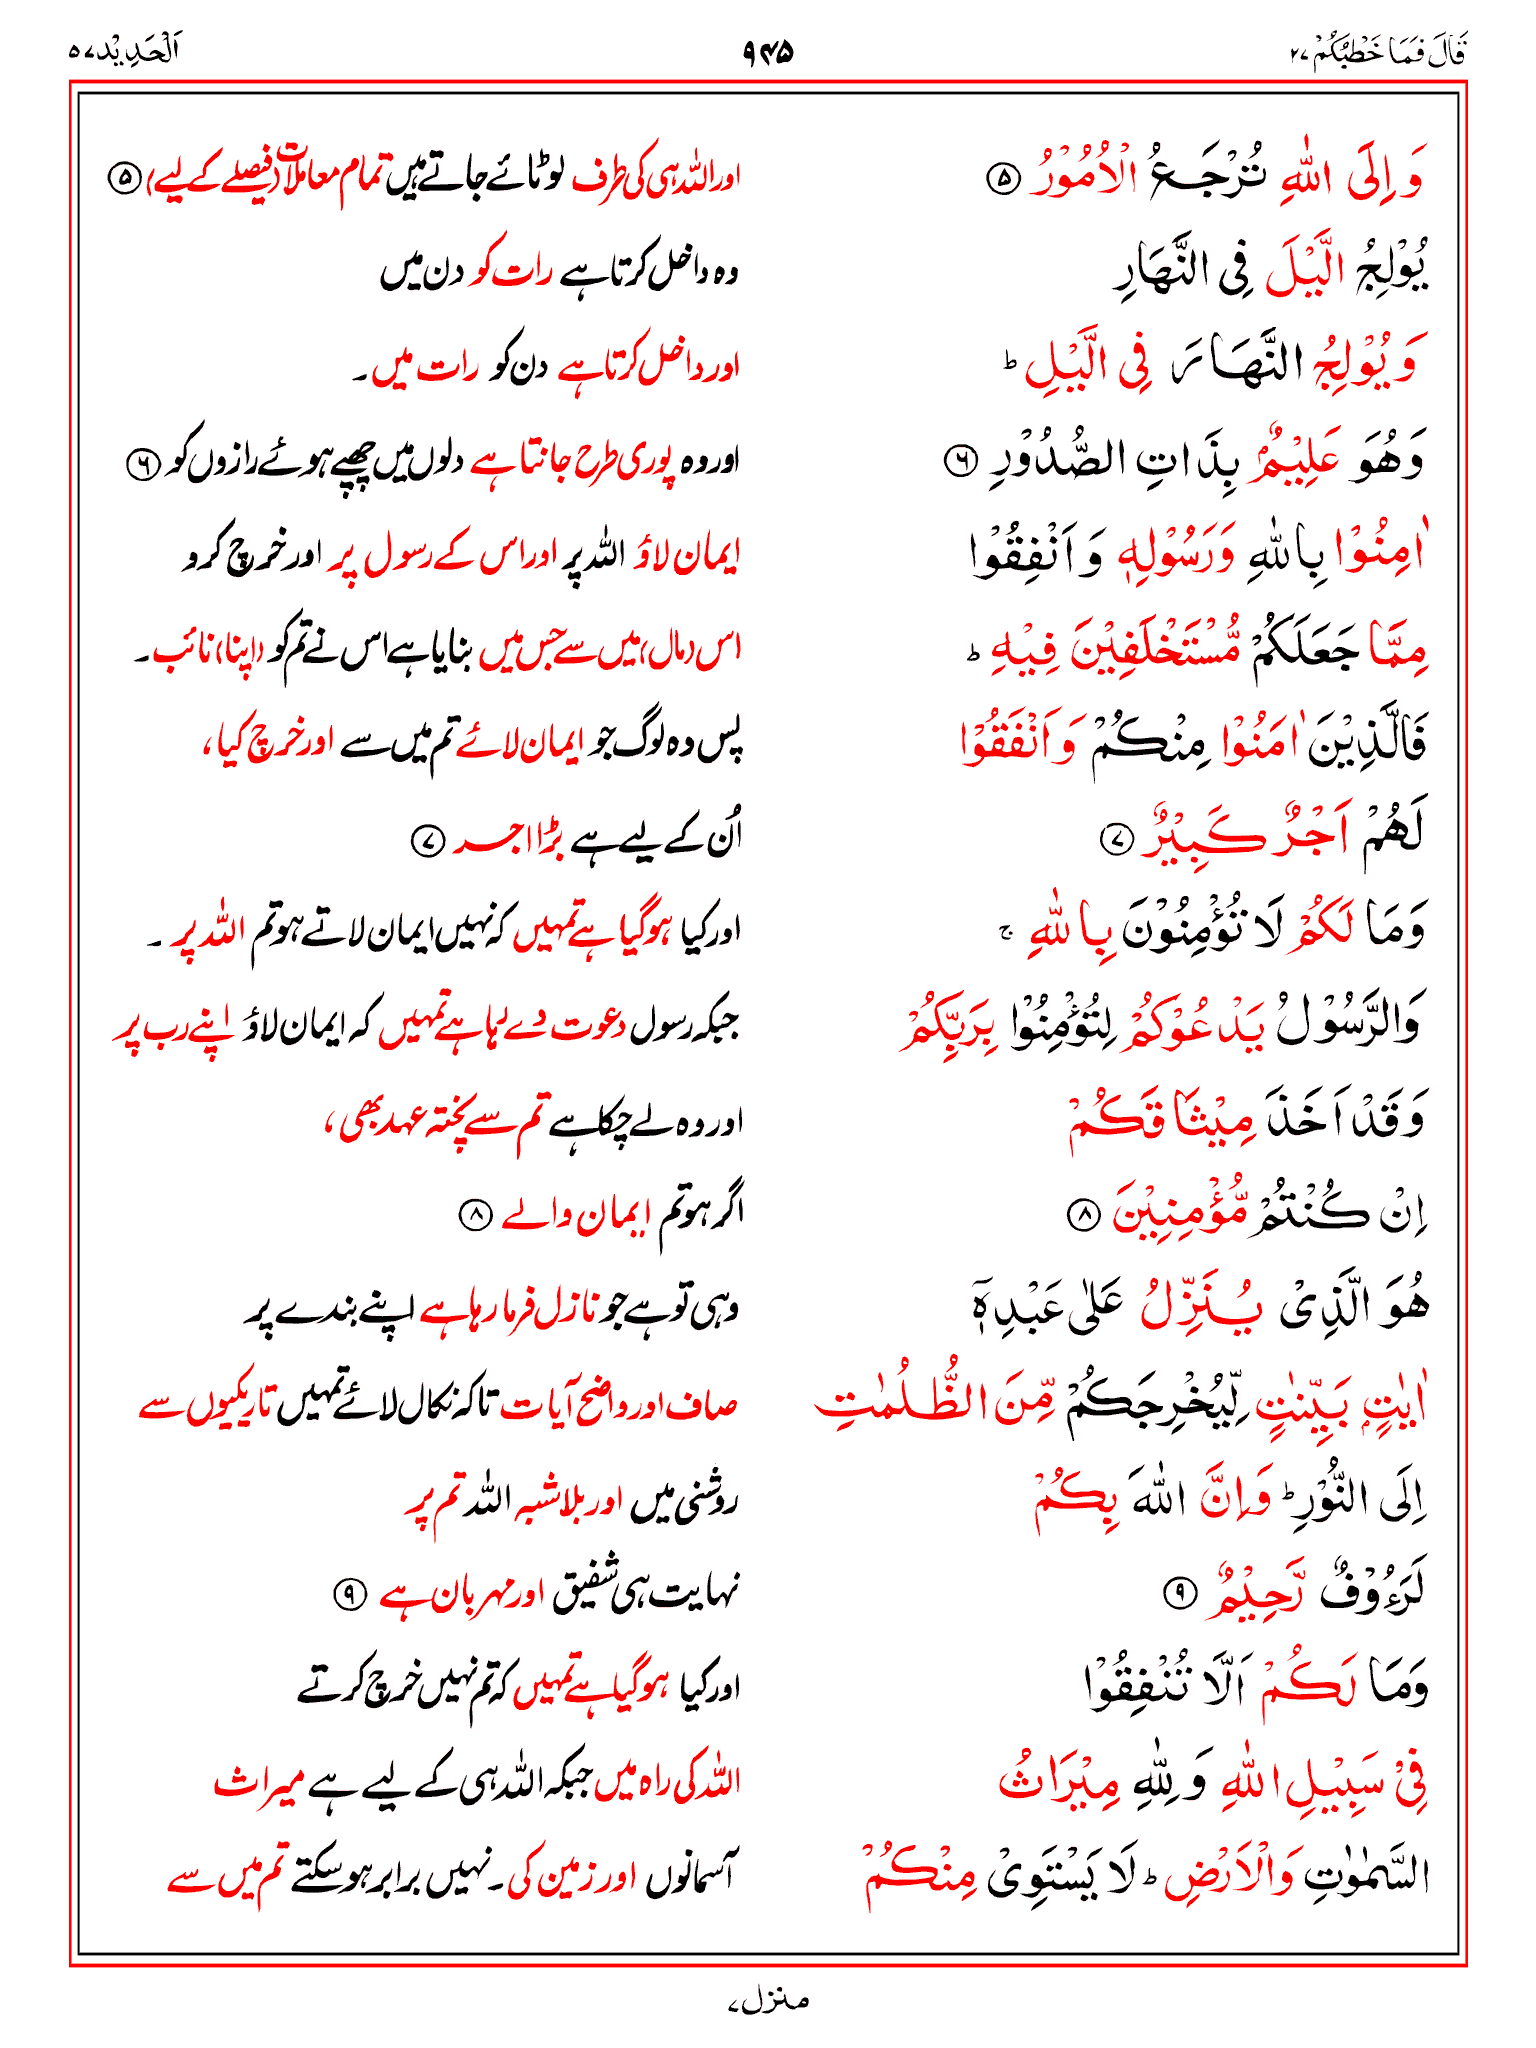 قَالَ فَمَا خَطْبُكُمْ ۲۷ ۹۴۵ اَلْحَدِيْد ۵۷
وَ اِلَى اللّٰهِ تُرْجَعُ الْاُمُوْرُ ۵ اور اللہ ہی کی طرف لوٹائے جاتے ہیں تمام معاملات (فیصلے کے لیے) ۵
يُوْلِجُ الَّيْلَ فِى النَّهَارِ وہ داخل کرتا ہے رات کو دن میں
وَ يُوْلِجُ النَّهَارَ فِى الَّيْلِ ؕ اور داخل کرتا ہے دن کو رات میں۔
وَهُوَ عَلِيْمٌۢ بِذَاتِ الصُّدُوْرِ ۶ اور وہ پوری طرح جانتا ہے دلوں میں چھپے ہوئے رازوں کو ۶
اٰمِنُوْا بِاللّٰهِ وَرَسُوْلِهٖ وَ اَنْفِقُوْا ایمان لاؤ اللہ پر اور اس کے رسول پر اور خرچ کرو
مِمَّا جَعَلَكُمْ مُّسْتَخْلَفِيْنَ فِيْهِ ؕ اس (مال) میں سے جس میں بنایا ہے اس نے تم کو (اپنا) نائب۔
فَالَّذِيْنَ اٰمَنُوْا مِنْكُمْ وَ اَنْفَقُوْا پس وہ لوگ جو ایمان لائے تم میں سے اور خرچ کیا،
لَهُمْ اَجْرٌ كَبِيْرٌ ۷ اُن کے لیے ہے بڑا اجر ۷
وَمَا لَكُمْ لَا تُؤْمِنُوْنَ بِاللّٰهِ ۚ اور کیا ہوگیا ہے تمہیں کہ نہیں ایمان لاتے ہو تم اللہ پر۔
وَالرَّسُوْلُ يَدْعُوْكُمْ لِتُؤْمِنُوْا بِرَبِّكُمْ جبکہ رسول دعوت دے رہا ہے تمہیں کہ ایمان لاؤ اپنے رب پر
وَقَدْ اَخَذَ مِيْثَاقَكُمْ اور وہ لے چکا ہے تم سے پختہ عہد بھی،
اِنْ كُنْتُمْ مُّؤْمِنِيْنَ ۸ اگر ہو تم ایمان والے ۸
هُوَ الَّذِىْ يُنَزِّلُ عَلٰى عَبْدِهٖۤ وہی تو ہے جو نازل فرما رہا ہے اپنے بندے پر
اٰيٰتٍۢ بَيِّنٰتٍ لِّيُخْرِجَكُمْ مِّنَ الظُّلُمٰتِ صاف اور واضح آیات تاکہ نکال لائے تمہیں تاریکیوں سے
اِلَى النُّوْرِ ؕ وَاِنَّ اللّٰهَ بِكُمْ روشنی میں اور بلاشبہ اللہ تم پر
لَرَءُوْفٌ رَّحِيْمٌ ۹ نہایت ہی شفیق اور مہربان ہے ۹
وَمَا لَكُمْ اَلَّا تُنْفِقُوْا اور کیا ہوگیا ہے تمہیں کہ تم نہیں خرچ کرتے
فِىْ سَبِيْلِ اللّٰهِ وَلِلّٰهِ مِيْرَاثُ اللہ کی راہ میں جبکہ اللہ ہی کے لیے ہے میراث
السَّمٰوٰتِ وَالْاَرْضِ ؕ لَا يَسْتَوِىْ مِنْكُمْ آسمانوں اور زمین کی۔ نہیں برابر ہو سکتے تم میں سے
منزل ۷